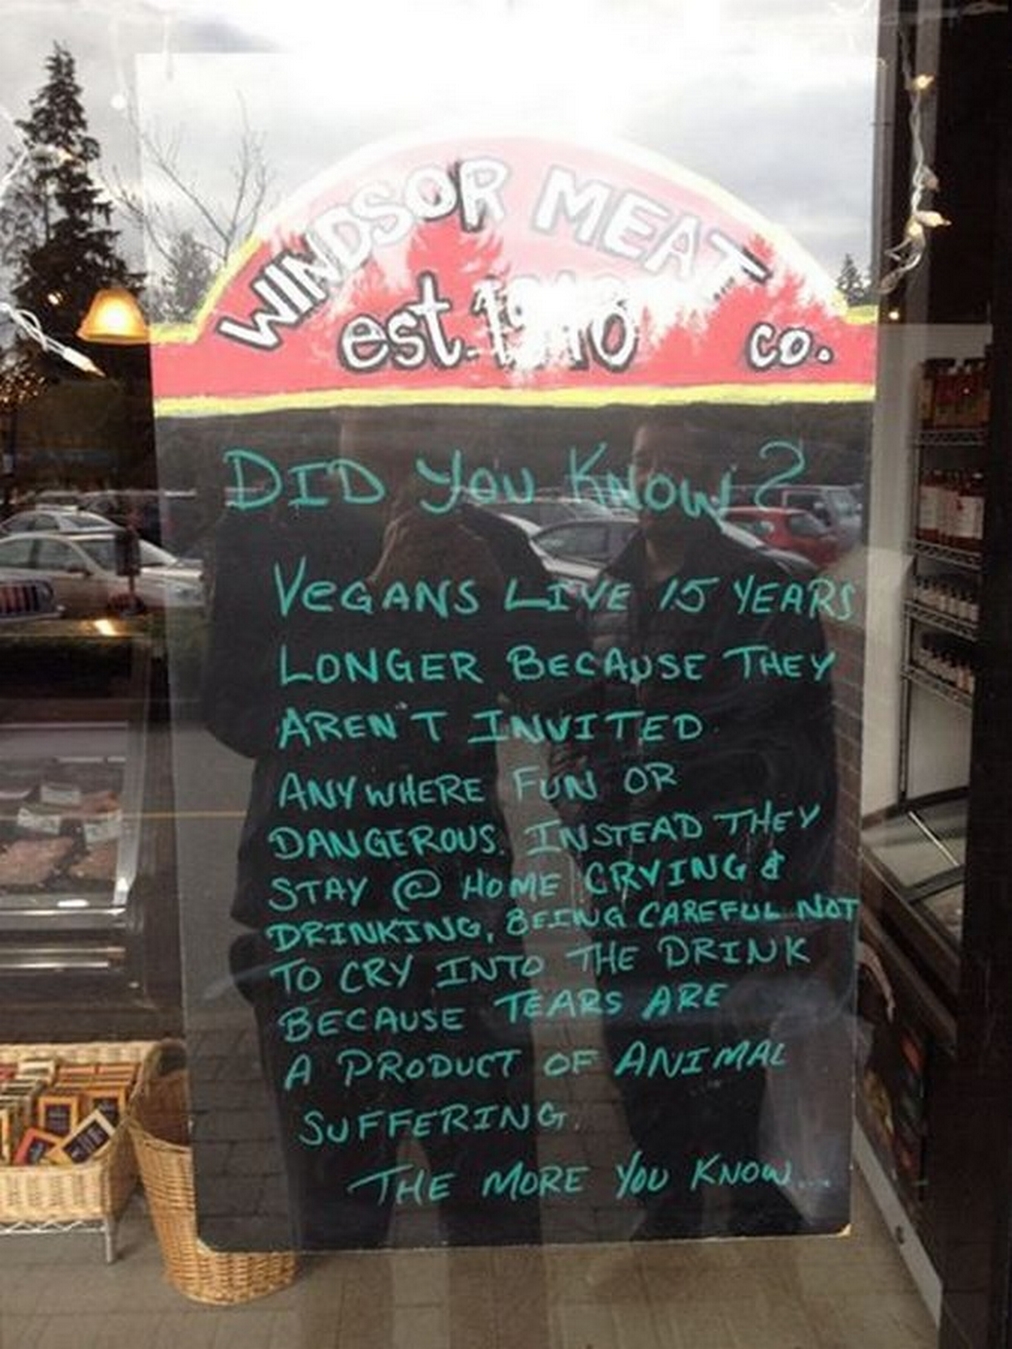 WINDSOR MEAT
est.
co.
DID YOU KNOW?
VEGANS LIVE 15 YEARS
LONGER BECAUSE THEY
AREN'T INVITED
ANYWHERE FUN OR
DANGEROUS. INSTEAD THEY
STAY @ HOME CRYING &
DRINKING, BEING CAREFUL NOT
TO CRY INTO THE DRINK
BECAUSE TEARS ARE
A PRODUCT OF ANIMAL
SUFFERING.
THE MORE YOU KNOW...